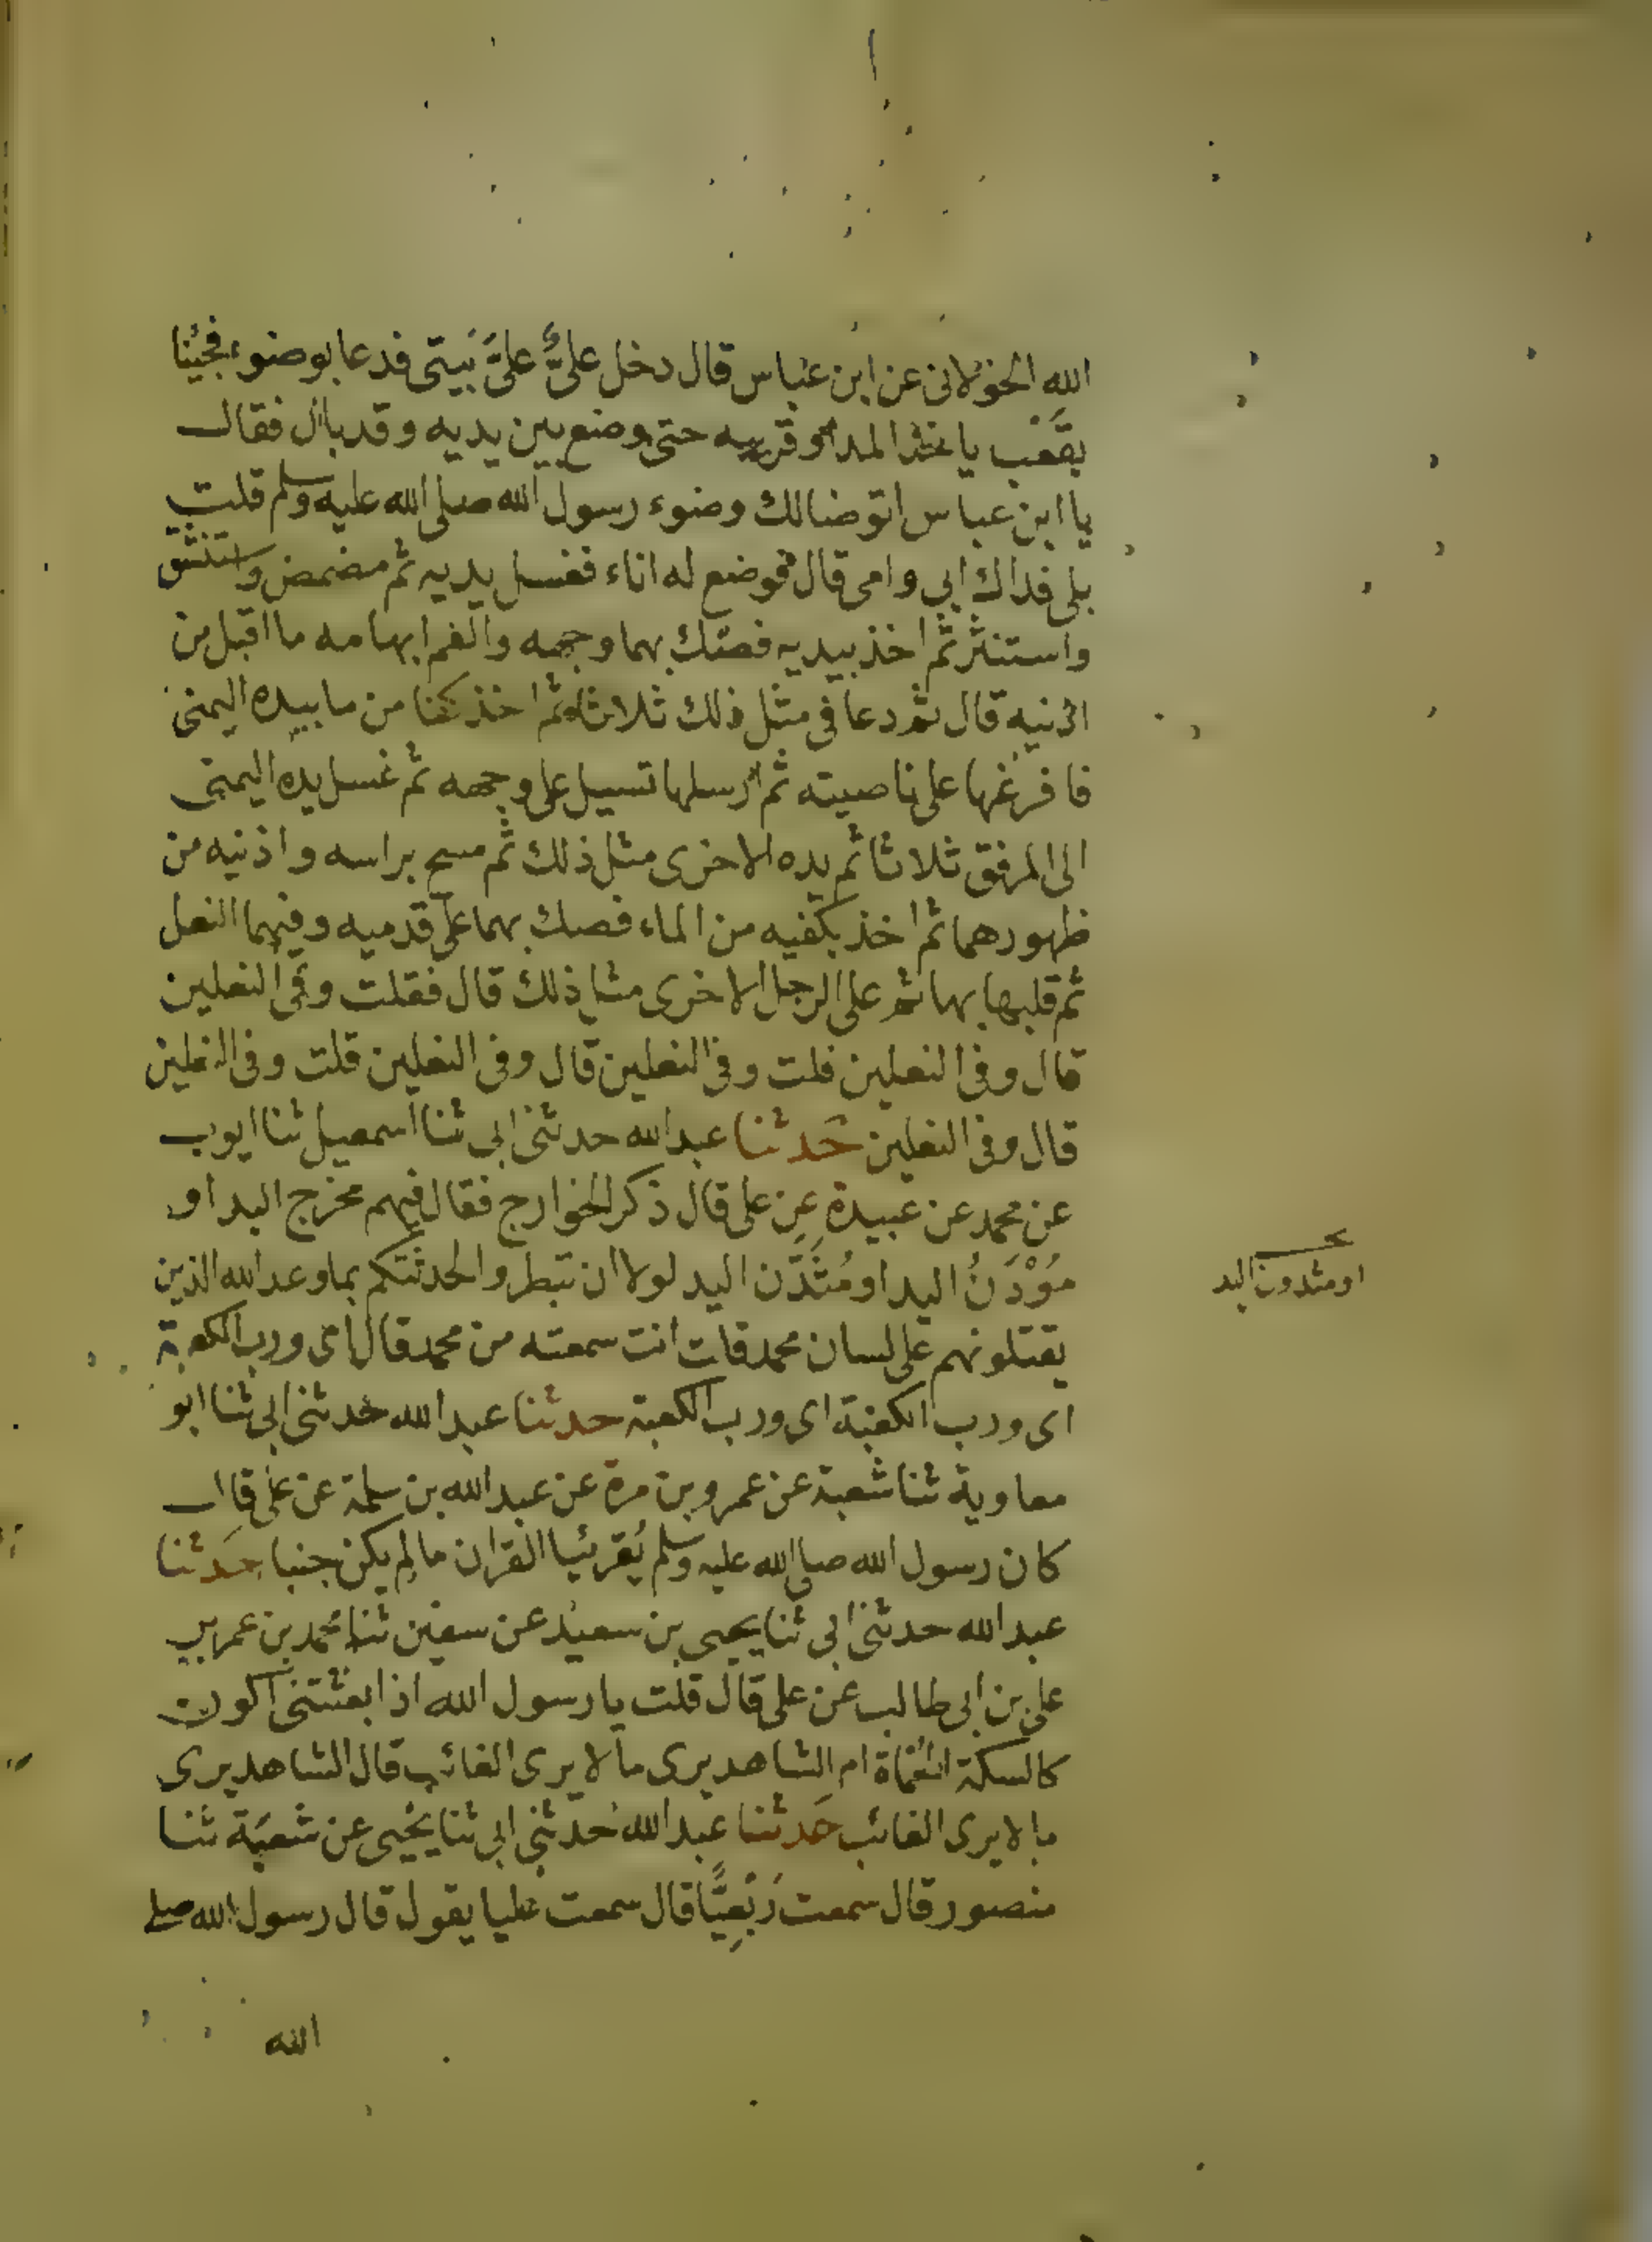 الله الخولانى عن ابن عباس قال دخل علىٌّ علىَّ بَيتى فدعا بوضوء فجئنا
بقَعْب ياخذ المد او قريبه حتى وضع بين يديه وقد بال فقال
يا ابن عباس اتوضا لك وضوء رسول الله صلى الله عليه وسلم قلت
بلى فداك ابي وامى قال فوضع له اناء فغسل يديه ثم مضمض واستنشق
واستنثر ثم اخذ بيديه فصك بهما وجهه والقم ابهامه ما اقبل من
اذنيه قال ثم دعا فى مثل ذلك ثلاثا ثم اخذ كفا من ما بيده اليمنى
فافرغها على ناصيته ثم ارسلها تسيل على وجهه ثم غسل يده اليمنى
الى المرفق ثلاثا ثم يده الاخرى مثل ذلك ثم مسح براسه واذنيه من
ظهورهما ثم اخذ بكفيه من الماء فصك بهما على قدميه وفيهما النعل
ثم قلبها بها ثم على الرجل الاخرى مثل ذلك قال فقلت وفى النعلين
قال وفى النعلين قلت وفى النعلين قال وفى النعلين قلت وفى النعلين
قال وفى النعلين حَدثنا عبد الله حدثنى ابى ثنا اسمعيل ثنا ايوب
عن محمد عن عبيدة عن على قال ذكر الخوارج فقال فيهم مخرج اليد او
مُوْدَنُ اليد او مُثَدَّن اليد لولا ان تبطروا لحدثتكم بما وعد الله الذين
يقتلونهم على لسان محمد قلت انت سمعته من محمد قال اى ورب الكعبة
اى ورب الكعبة اى ورب الكعبة حدثنا عبد الله حدثنى ابى ثنا ابو
معاوية ثنا شعبة عن عمرو بن مرة عن عبد الله بن سلمة عن على قال
كان رسول الله صلى الله عليه وسلم يُقرئنا القران ما لم يكن جنبا حَدثنا
عبد الله حدثنى ابى ثنا يحيى بن سعيد عن سفين ثنا محمد بن عمر بن
على بن ابى طالب عن على قال قلت يا رسول الله اذا بعثتنى اكون
كالسكة المحماة ام الشاهد يرى ما لا يرى الغائب قال الشاهد يرى
ما لا يرى الغائب حَدثنا عبد الله حدثنى ابى ثنا يحيى عن شعبة ثنا
منصور قال سمعت رِبْعِيًّا قال سمعت عليا يقول قال رسول الله صلى
الله
او مثدون اليد